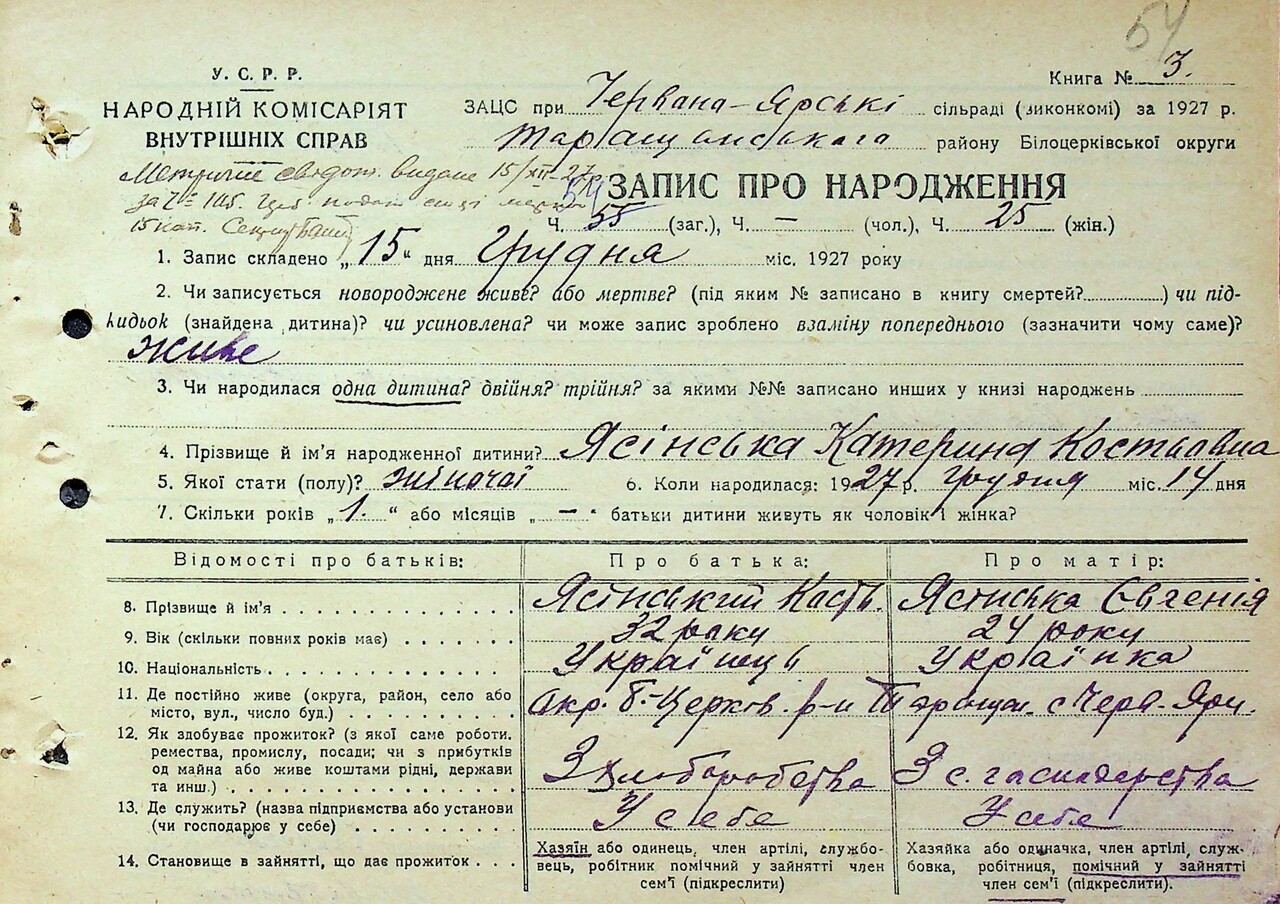 54
У. С. Р. Р.
Книга № 3.
НАРОДНІЙ КОМІСАРІЯТ
ВНУТРІШНІХ СПРАВ
ЗАЦС при Червана-Ярські сільраді (виконкомі) за 1927 р.
Таращанського району Білоцерківської округи
Метричне свідот. видане 15/XII-27
за №= 105.
15 коп.
ЗАПИС ПРО НАРОДЖЕННЯ
Ч. 55 54 (заг.), Ч. — (чол.), Ч. 25 (жін.)
1. Запис складено „15“ дня Грудня міс. 1927 року
2. Чи записується новороджене живе? або мертве? (під яким № записано в книгу смертей?) чи під-
кидьок (знайдена дитина)? чи усиновлена? чи може запис зроблено взаміну попереднього (зазначити чому саме)?
живе
3. Чи народилася одна дитина? двійня? трійня? за якими №№ записано инших у книзі народжень
4. Прізвище й ім’я народженної дитини? Ясінська Катерина Костьовна
5. Якої стати (полу)? жіночаї 6. Коли народилася: 1927 р. Грудня міс. 14 дня
7. Скільки років „1.“ або місяців „—“ батьки дитини живуть як чоловік і жінка?
Відомості про батьків: Про батька: Про матір:
8. Прізвище й ім’я Ясінський Кость. Ясінська Євгенія
9. Вік (скільки повних років має) 32 роки 24 роки
10. Національність Українець Українка
11. Де постійно живе (округа, район, село або
місто, вул., число буд.) Окр. Б-Церков. р-н Таращан. с Черв. Яри.
12. Як здобуває прожиток? (з якої саме роботи.
ремества, промислу, посади; чи з прибутків
од майна або живе коштами рідні, держави
та инш.) З хлоборобства З с. гасподарства
13. Де служить? (назва підприємства або установи
(чи господарює у себе) У себе У себе
14. Становище в зайнятті, що дає прожиток
Хазяїн або одинець, член артілі, службо-
вець, робітник помічний у зайнятті член
сем’ї (підкреслити)
Хазяйка або одиначка, член артілі, служ-
бовка, робітниця, помічний у зайнятті
член сем’ї (підкреслити).